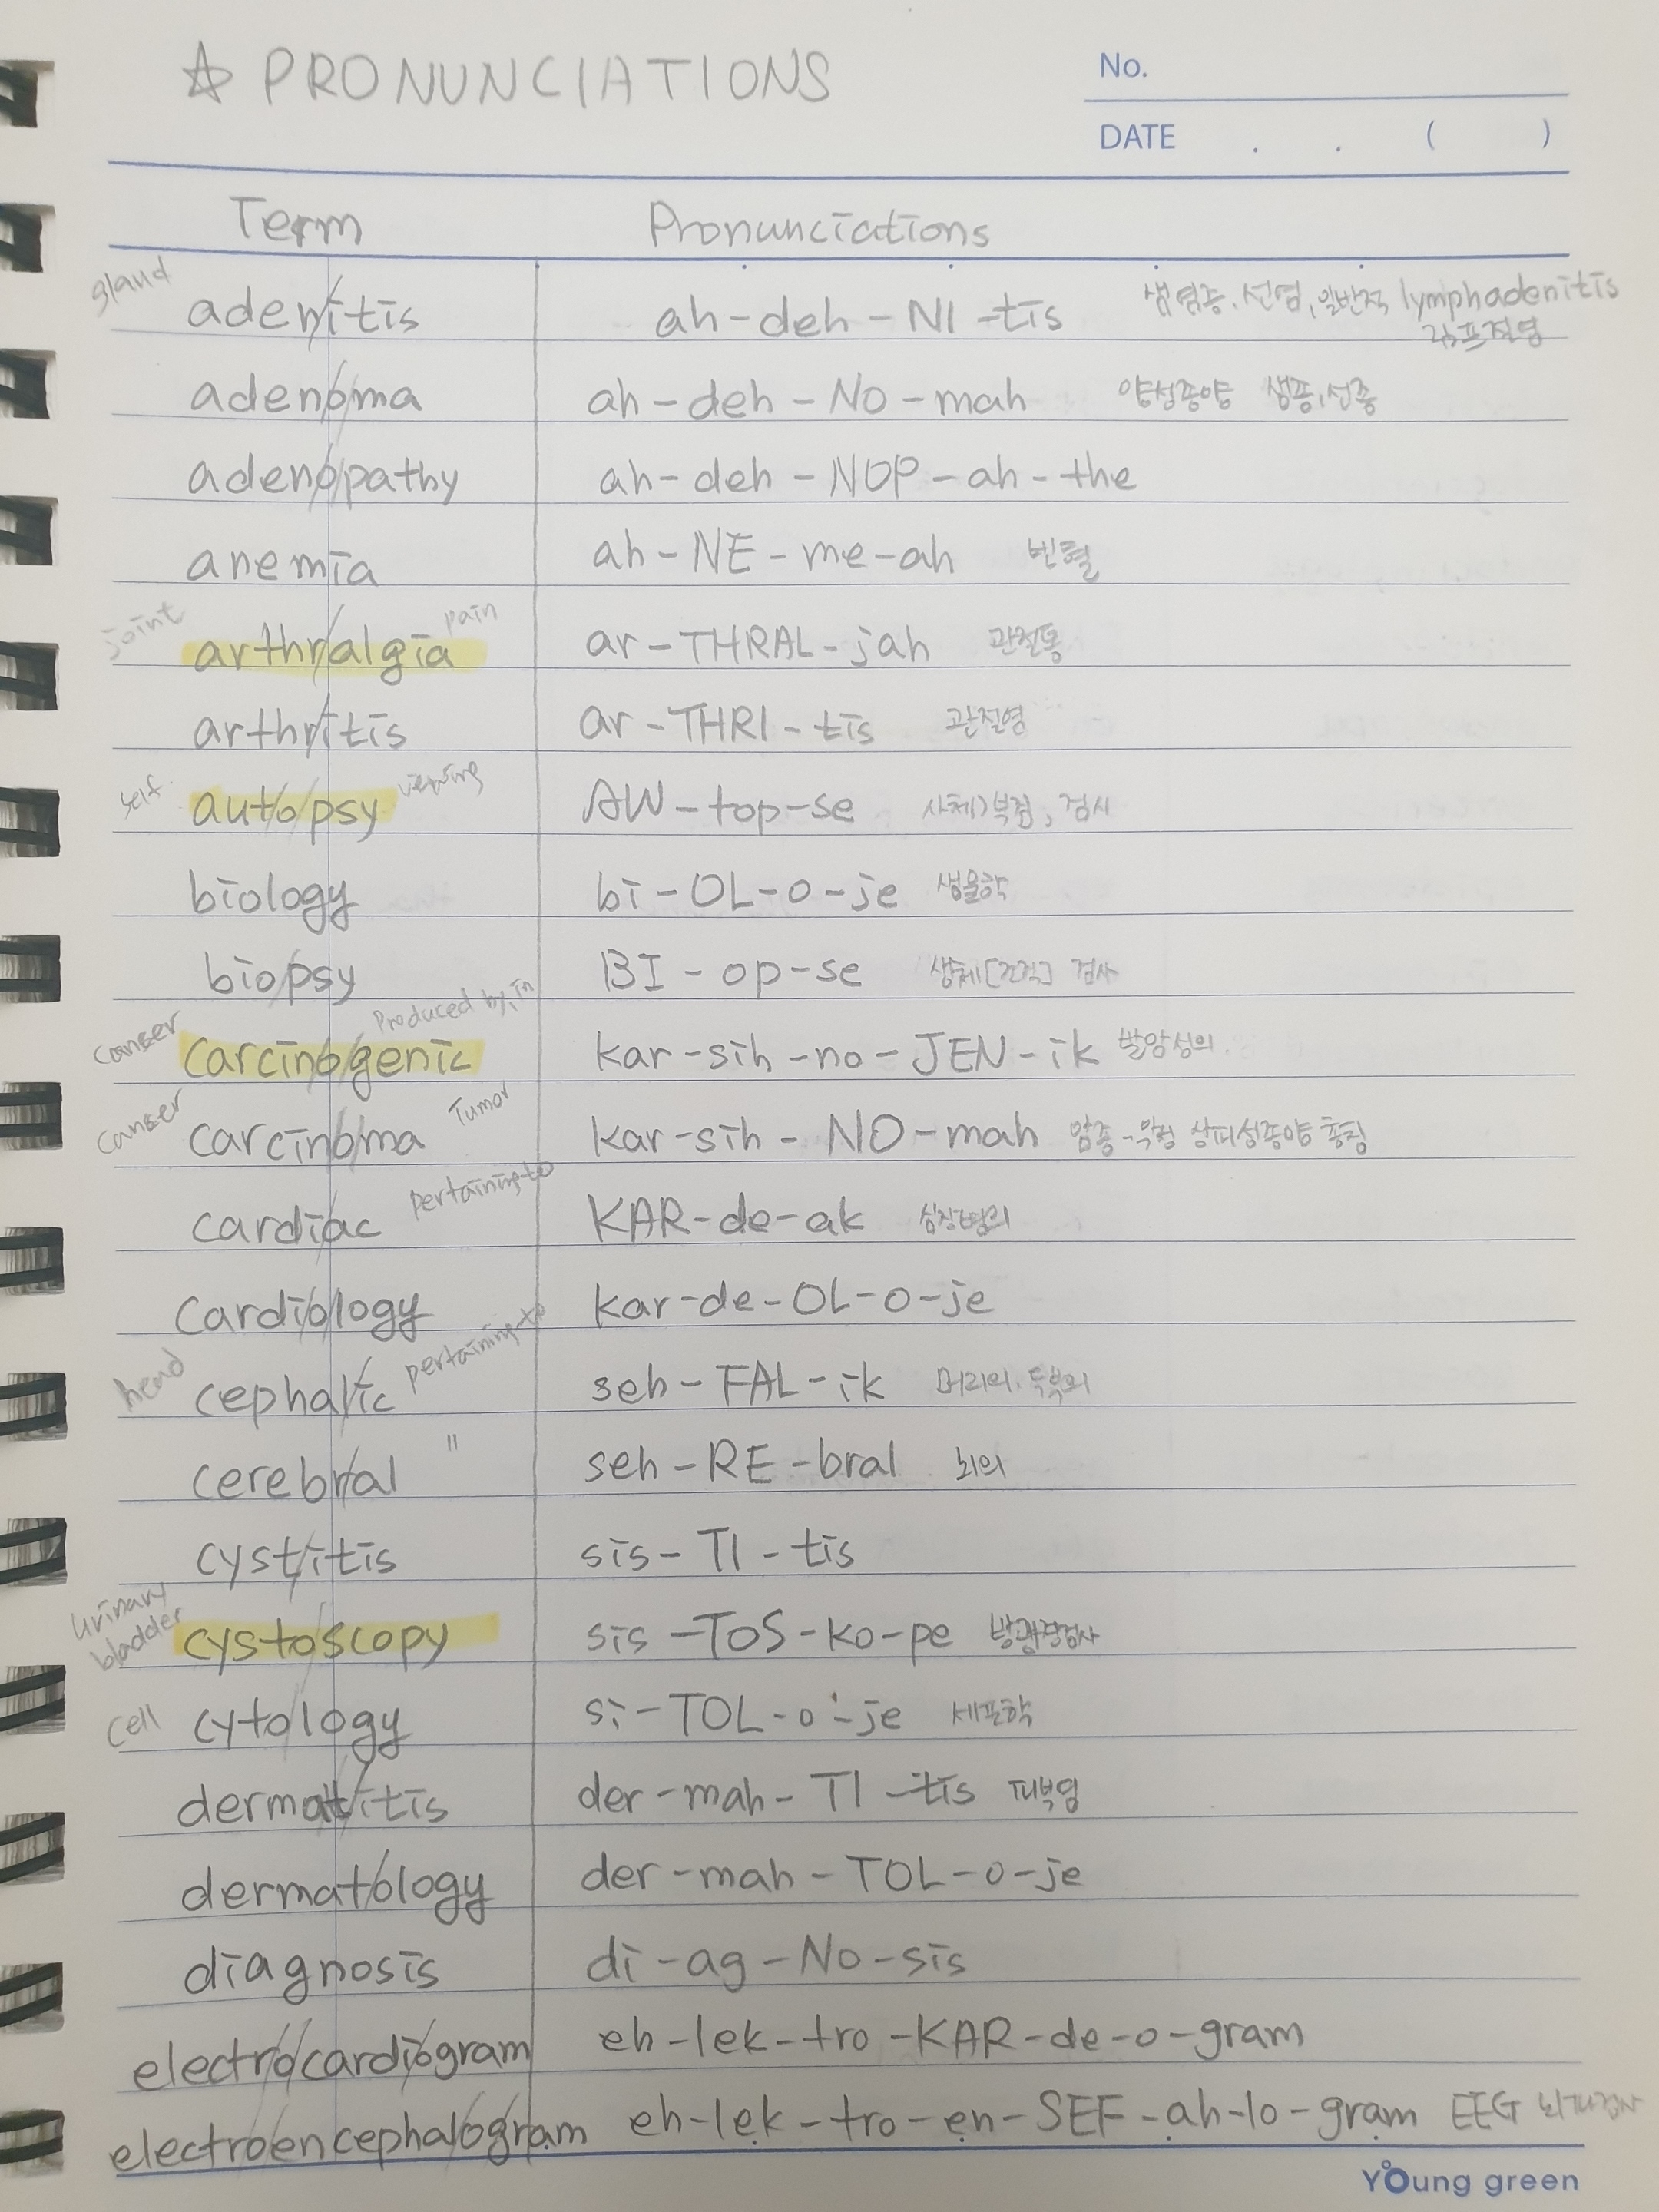 ☆ PRONUNCIATIONS
No.
DATE . . ( )
Term Pronunciations
gland aden/itis ah-deh-NI-tis 샘염증, 선염, 일반적 lymphadenitis
림프절염
aden/o/ma ah-deh-NO-mah 양성종양 샘종, 선종
aden/o/pathy ah-deh-NOP-ah-the
anemia ah-NE-me-ah 빈혈
joint arthr/algia pain ar-THRAL-jah 관절통
arthr/itis ar-THRI-tis 관절염
self aut/o/psy viewing AW-top-se 사체)부검, 검시
biology bi-OL-o-je 생물학
bio/psy BI-op-se 생체[조직] 검사
canser carcin/o/genic produced by, in kar-sih-no-JEN-ik 발암성의
canser carcin/o/ma Tumor kar-sih-NO-mah 암종- 상피성종양 총칭
cardi/ac pertaining to KAR-de-ak 심장병의
cardi/o/logy kar-de-OL-o-je
head cephal/ic pertaining to seh-FAL-ik 머리의, 두부의
cerebr/al " seh-RE-bral 뇌의
cyst/itis sis-TI-tis
urinary bladder cyst/o/scopy sis-TOS-ko-pe 방광경검사
cell cyt/o/logy si-TOL-o-je 세포학
dermat/itis der-mah-TI-tis 피부염
dermat/o/logy der-mah-TOL-o-je
diagnosis di-ag-NO-sis
electr/o/cardi/o/gram eh-lek-tro-KAR-de-o-gram
electr/o/encephal/o/gram eh-lek-tro-en-SEF-ah-lo-gram EEG 뇌파검사
Young green